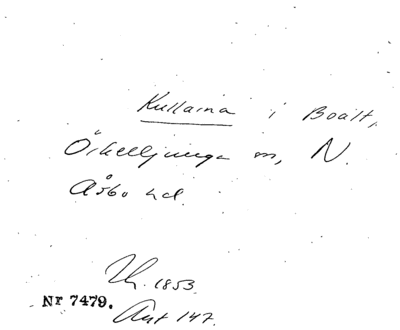 Kullarna i Boalt,
Örkelljunga sn, N.
Åsbo hd.
Th. 1853
Nr 7479.
Ant 147.